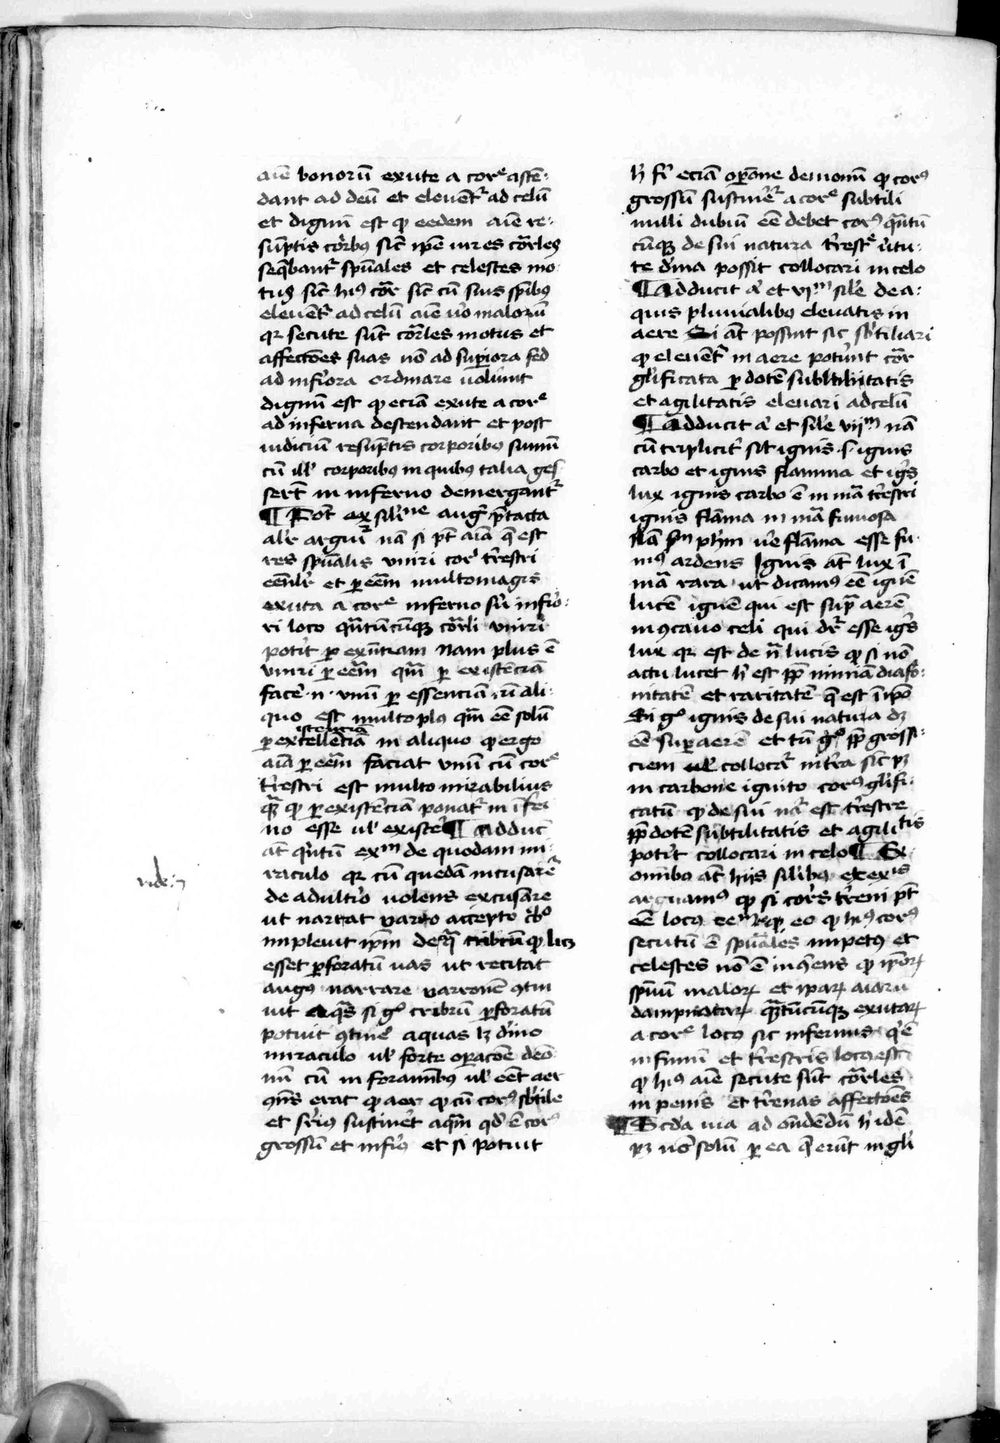 aīe bonorū exute a corᵉ asten-
dant ad deū et eleuentʳ ad celū
et dignū est qͥ eedem aīe re-
sūptis corͥbꝰ sic̄ ip̄e uires corͣles
seqͥbantʳ spūales et celestes mo-
tus sic̄ hiꝰ cor̄ sic̄ cū suis spͥibꝰ
eleuentʳ ad celū aīe uͦo malorū
qꝛ secute sūt corͣles motus et
affectōes suas nō ad supͥiora sed
ad infͥiora ordinare uolūnt
dignū est qͥ eciā exute a corᵉ
ad inferna descendant et post
iudiciū resūptis corporibꝰ simul
cū ill' corporibꝰ in quibus talia ges-
serūt in inferno demergantʳ
¶ Pot̄ ex sil'ine augꝰ pͣtacta
al'r arguiʳ nā si pōt aīa q̄ est
res spūalis uniri corͥ tͬrestri
eēnl'r et ꝑ eēm multomagis
exuta a corᵉ inferno siū infͥio-
ri loco qͣntūcūqꝫ corͣli uniri
potit̄ ꝑ exn̄tiam nam plus ē
uniri ꝑ eēm qͣm ꝑ existēciā
facēⁱ n̄ unū ꝑ essenciā cū ali-
quo est multoplꝰ qͣm eē solū
ꝑ existenciā in aliquo qͥ ergo
aīa ꝑ eēm faciat unū cū corᵉ
tͬrestri est multo mirabilius
qͣ qͥ ꝑ existēciā ponatʳ in īfer-
no esse ul' existeʳ ¶ Adduc̄
aūt qͥntū exᵐ de quodam mi-
raculo qꝛ cū quedā incusareʳ
de adultͥo uolens excusare
ut narrat varro accepto cͥbͦ
impleuit ip̄m de qͣ cribrū qͥ licꝫ
esset ꝑforatū uas ut recitat
augꝰ narrare varronē ꝯtin
uit aqͣs si gͦ cribrū ꝑforatū
potuit ꝯtinēʳ aquas lꝫ dīno
miraculo ul' forte oꝑacōe deō-
nū cū in foramībꝰ ul' eēt aer
ꝯn̄s erat qͥ aer qͥ cū corꝰ sbtile
et sꝑiꝰ sustinet̄ aqͣm qd̄ ē corꝰ
grossū et infͥiꝰ et si potuit
h̄ fiͥ eciā oꝑatōne demonū qͥ corꝰ
grossū sustinētʳ a corᵉ subtili
nulli dubiū eē debet corꝰ qͣntū
cūqꝫ de sui natura tͬrestᵉ uͥtu-
te dīna possit collocari in celo
¶ Adducit aͥ et vjᵐ sil'e de a-
quis pluuialibꝰ eleuatis in
aere Si aūt possint sic sbtiliari
qͥ eleuentʳ in aere potͥunt cor̄
gl'ificata ꝑ dotē subtilitatis
et agilitatis eleuari ad celū
¶ Adducit aͥ et sil'e vijᵐ nā
cū triplicit̄ sit ignis .s. ignis
carbo et ignis flamma et igꝰs
lux ignis carbo ē in mā tͬrestri
ignis flāma in mā fumosa
Nā scdm ph̄m uͥe flāma esse fu-
mꝰ ardens Ignis aūt lux ī
mā rara ut dicamꝰ eē ignē
lucē ignē qui est supͣ aerē
in ꝯcauo celi qui drʳ esse igꝰs
lux qꝛ est de nͣ lucis qͥ si nō
actu lucet h̄ est ꝓp nimiā diafo-
nitatē et raritatē q̄ est ī ip̄o
Si gͦ ignis de sui natura dꝫ
eē super aerē et tn̄ gͦ ꝓp grossi-
ciem ul' collocatʳ in tͬra sic pꝫ
in carbone ignito corꝰ gl'ifi-
catū qͥ de sui nͣ est tͬrestre
ꝓp dotē subtilitatis et agilitatis
potit̄ collocari in celo ¶ Ex
omībꝰ aūt hiis sil'ibꝰ et exᵢˢ
arguamꝰ qͥ si corꝰ tͬreni pōt
eē locꝰ eo qͥ hiꝰ corꝰ
secutū ē spūales impetꝰ et
celestes nō ē inꝯuens qͥ ip̄oꝝ
spūū maloꝝ et ip̄aꝝ aīarū
dampnataꝝ qͣntūcūqꝫ exutaꝝ
a corᵉ locꝰ sic infernus qͥ ē
infimꝰ et tͬrestris loca est
qͥ hiꝰ aīe secute sūt corͣles
in penis et tͬrenas affectōes
¶ Scd̄a uia ad on̄dendū h̄ idē
pꝫ nō solū ꝑ ea q̄ erūt in gl'i
vide